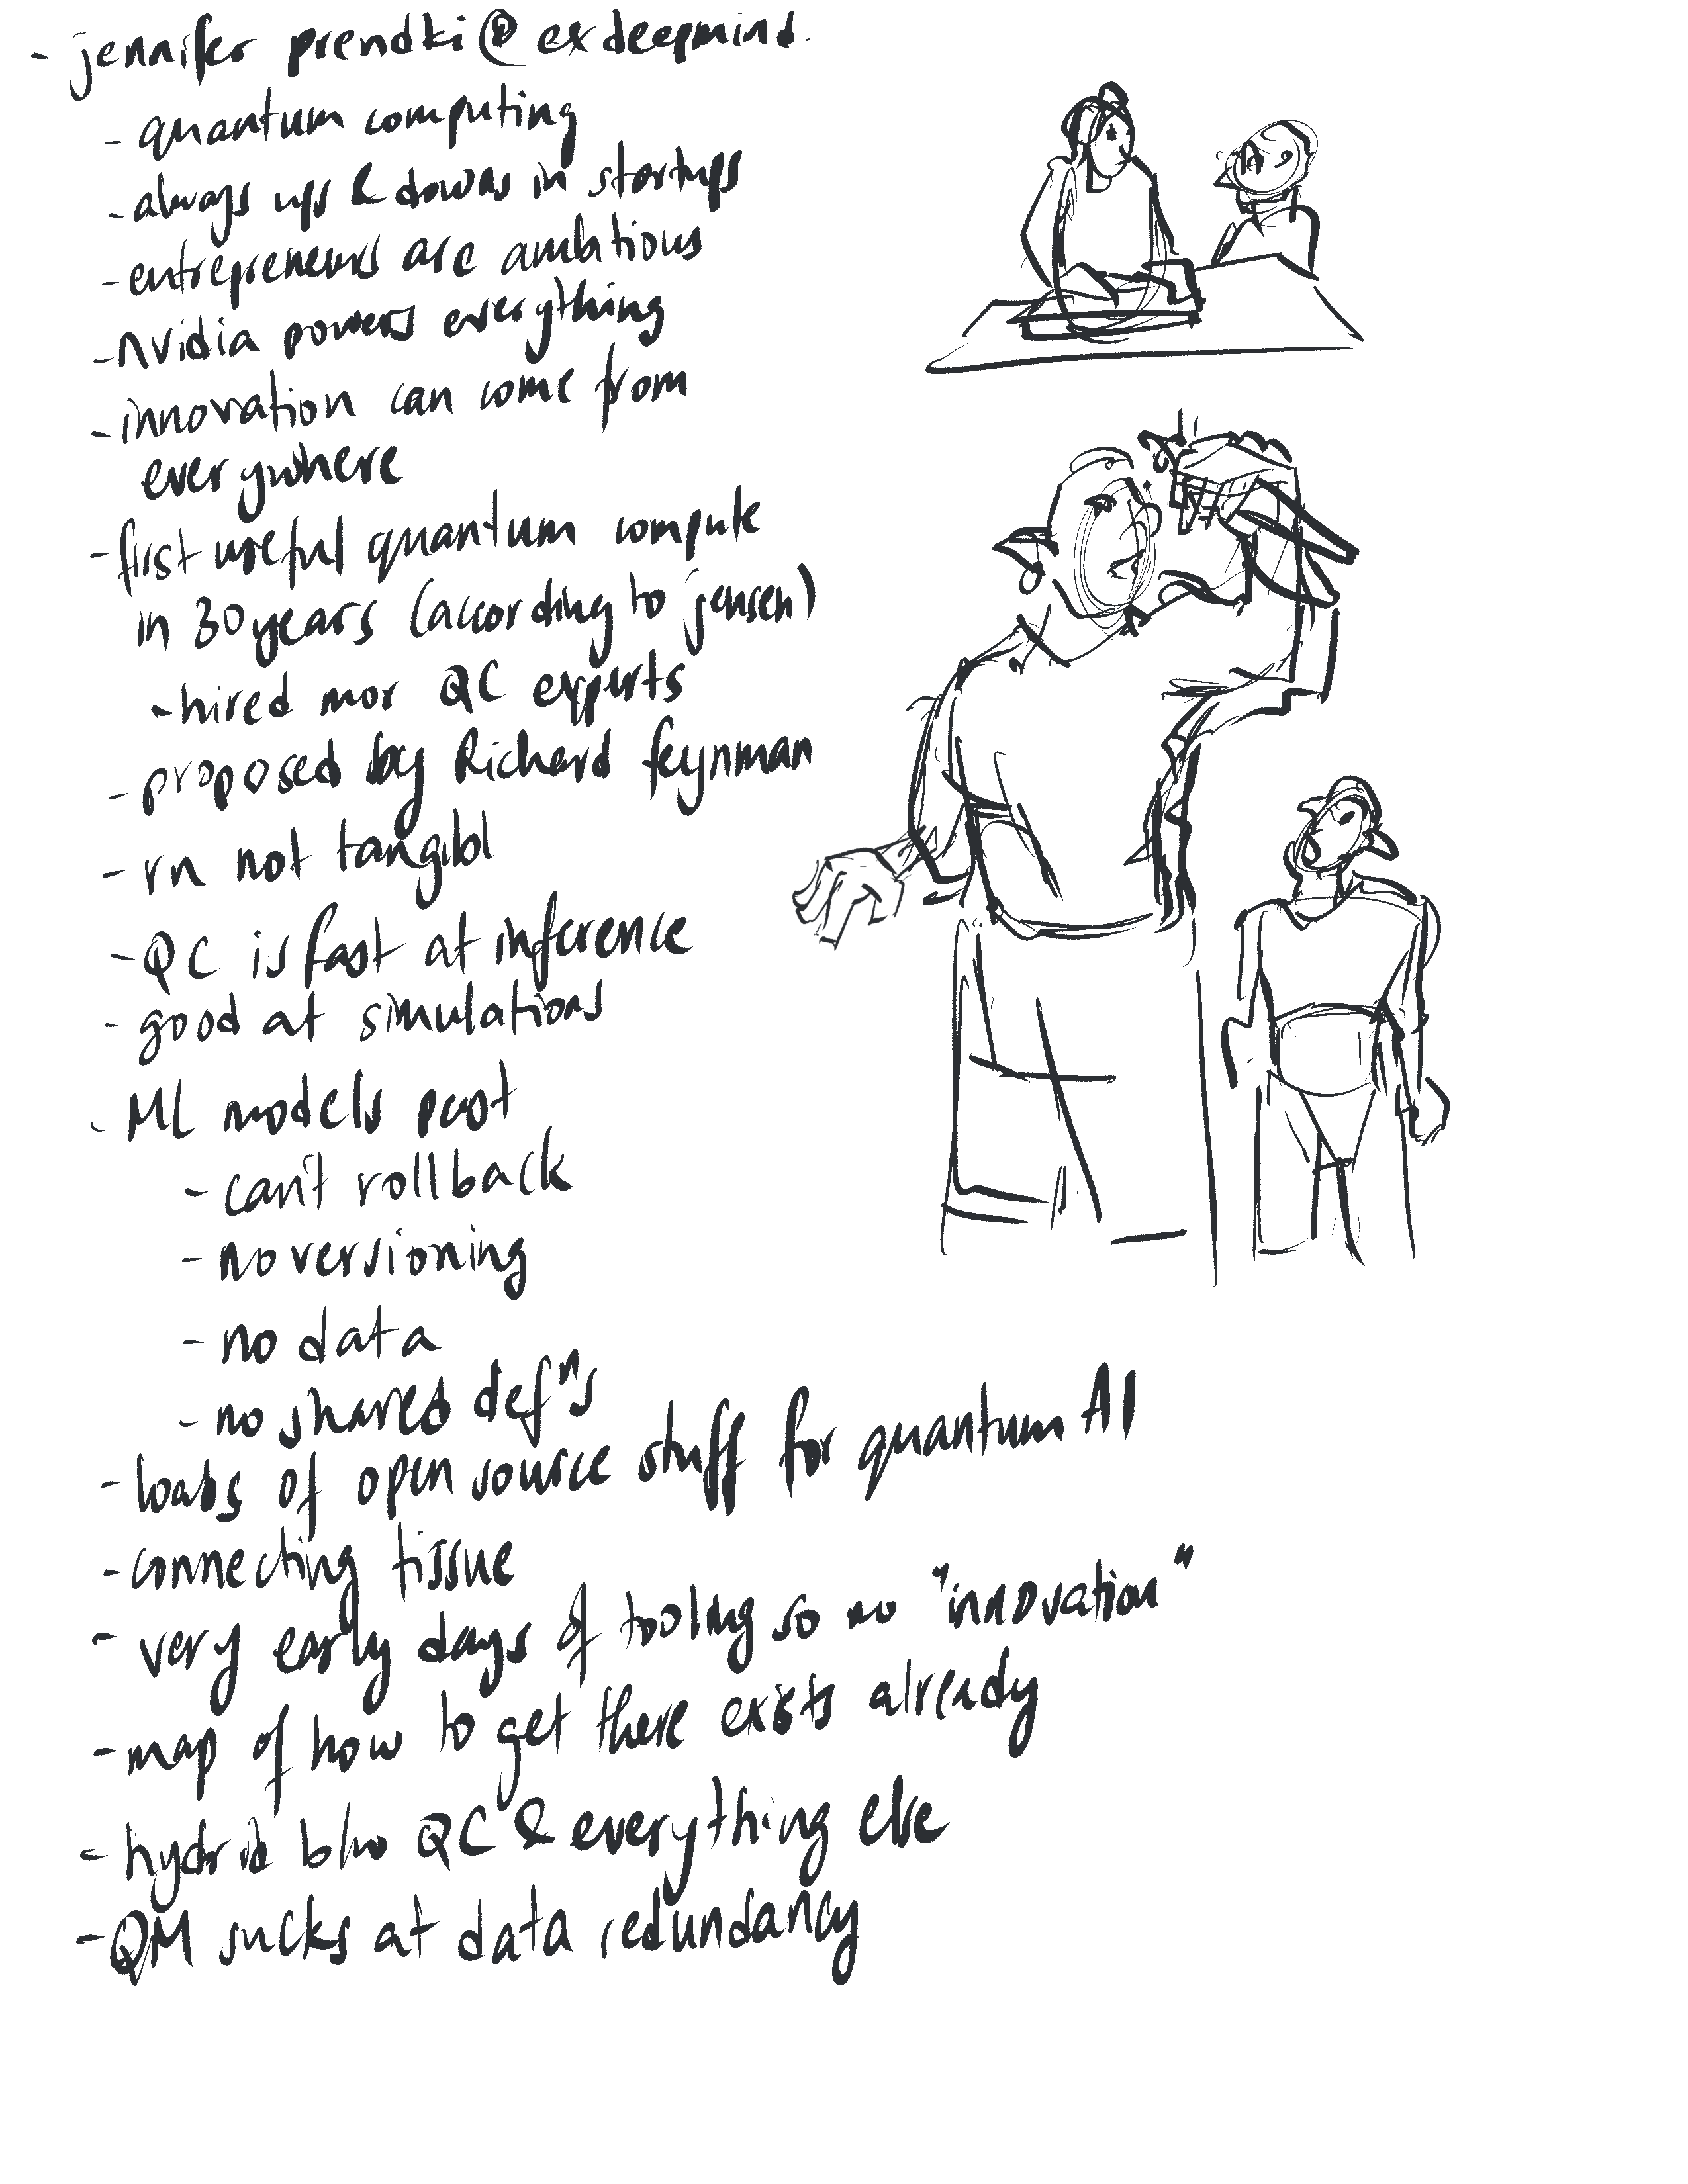 - jennifer prendki @ ex deepmind.
- quantum computing
- always ups & downs in startups
- entrepreneurs are ambitious
- nvidia powers everything
- innovation can come from
everywhere
- first useful quantum compute
in 30 years (according to jensen)
- hired mor QC experts
- proposed by Richard feynman
- rn not tangibl
- QC is fast at inference
- good at simulations
- ML models past
- can't rollback
- no versioning
- no data
- no shared defⁿs
- loads of open source stuff for quantum AI
- connecting tissue
- very early days of tooling so no "innovation"
- map of how to get there exists already
- hydrid b/w QC & everything else
- QM sucks at data redundancy